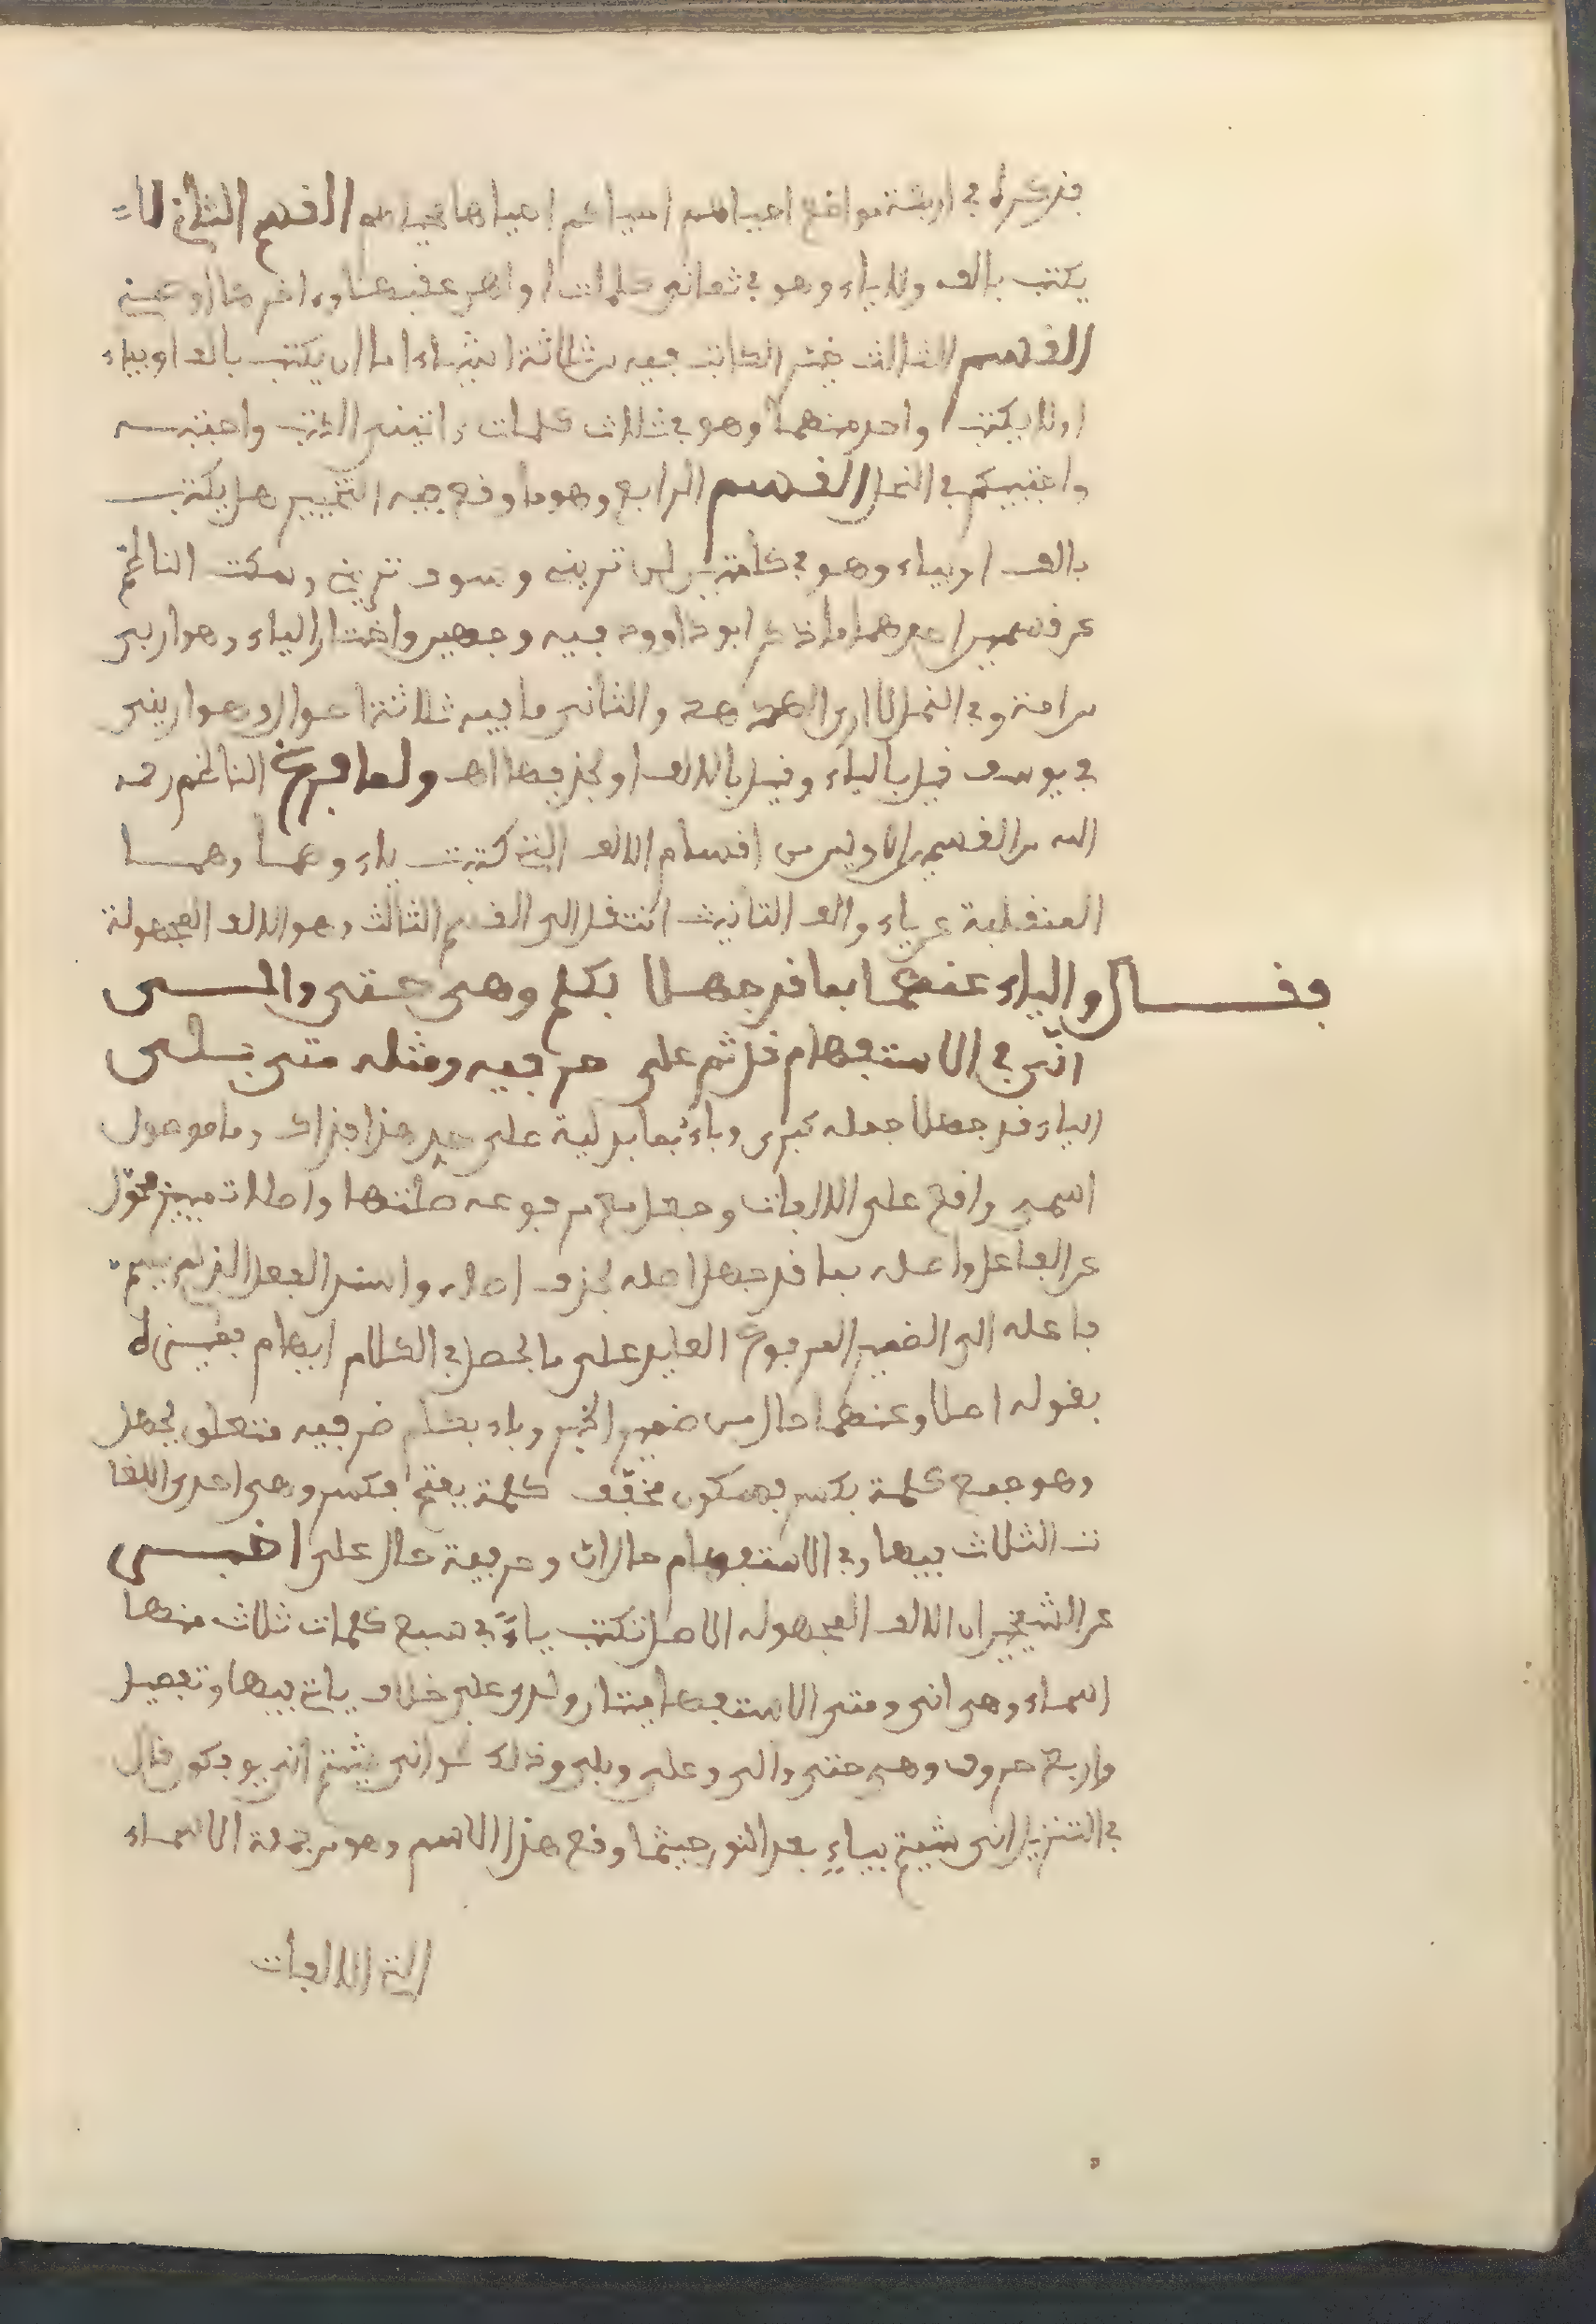 فذكرها في اربعة مواضع احياهم احياكم احياها محياهم القسم الثاني لا=
يكتب بالف ولا ياء وهو في ثماني كلمات اولاهن عقبها
القسم الثالث خير الكاتب فيه من ثلاثة اشياء اما ان يكتب بالف او بياء
او لا يكتب واحد منهما وهو في ثلاث كلمات ءاتيني الكتب واجتبيه
واجتبيكم في النحل القسم الرابع وهو ما وقع فيه التخيير هل يكتب
بالف او بياء وهو في كلمتين لن تريني وسوف تريني وسكت الناظم
عن قسمين احدهما ما ذكر ابو داوود فيه وجهين واختار الياء وهو اربى
من امة وفي النمل لا ارى الهدهد والثاني ما فيه ثلاثة احوال وهو اريني
في يوسف قيل بالياء وقيل بالالف او بحذفها اهـ ولما فرغ الناظم رحمه
الله من القسمين الاولين من اقسام الالف التي كتبت ياء وهما وهما
المنقلبة عن ياء والف التانيث انتقل الى القسم الثالث وهو الالف المجهولة
فقــال والياء عنهما بما قد جهلا بكلم وهي حتى والى
انى في الاستفهام قل ثم على حرفيه ومثله متى بلى
الياء قد جهلا جمله كبرى وباء بما بدلية على حد هذا بذاك وما موصول
اسمي واقع على الالفات وجهل مع مرفوعه صلتها واصلا تمييز محوّل
عن الفاعل واصله بما قد جهل اصله فحذف اصله واسند الفعل الذي لم يسم
فاعله الى الضمير المرفوع العايد على ما فحصل في الكلام ابهام ففسره
بقوله اصلا وعنهما حال من ضمير الخبر وباء بكلم ظرفيه متعلق بجهل
وهو جمع كلمة بكسر فسكون مخفّف كلمة بفتح فكسر وهي احدى اللغا
ت الثلاث فيها وفي الاستفهام حال انى وحرفية حال على اخبــر
عن الشيخين ان الالف المجهوله الاصل تكتب ياءً في سبع كلمات ثلاث منها
اسماء وهي انى ومتى الاستفهاميتان ولدى على خلاف ياتي فيها وتفصيل
واربع حروف وهي حتى والى وعلى وبلى وذلك نحو انى شيتم انى يوفكون قال
في التنزيل انى شيتم بياءٍ بعد النون حيثما وقع هذا الاسم وهو من جملة الاسماء
التي الالفات